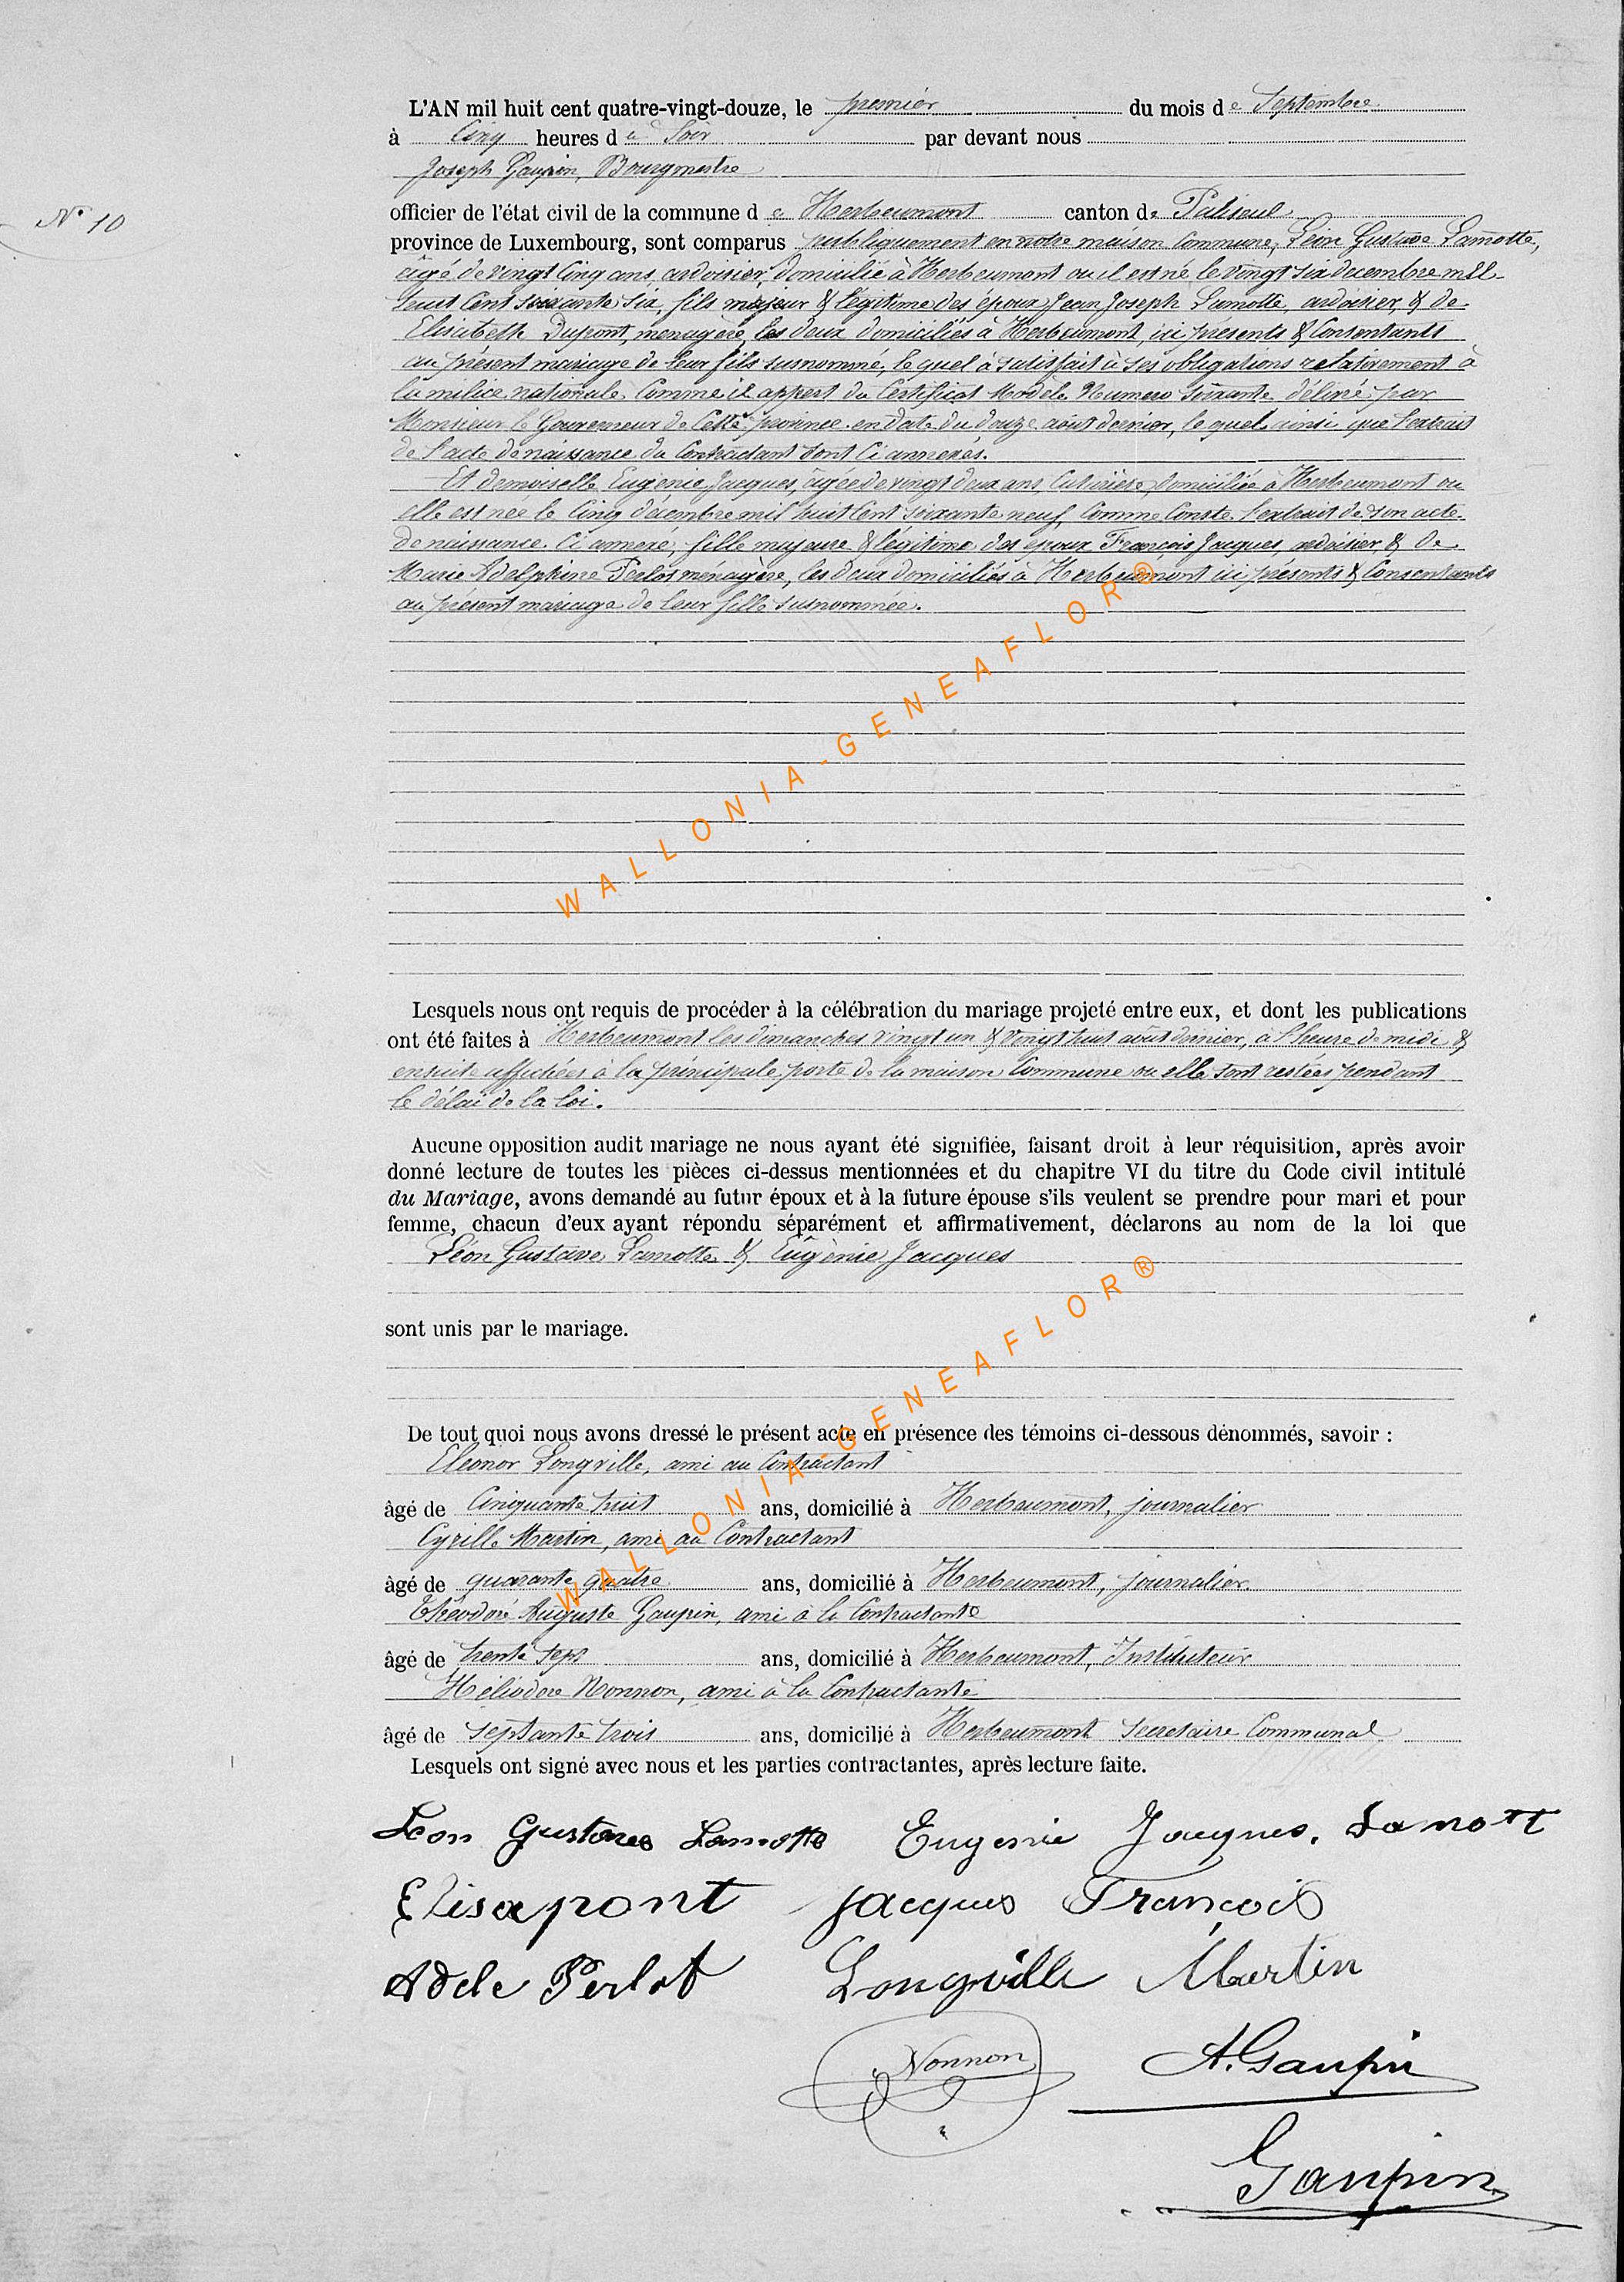 L'AN mil huit cent quatre-vingt-douze, le premier du mois de Septembre
à Cinq heures du Soir par devant nous
Joseph Gaupin, Bourgmestre
N° 10
officier de l'état civil de la commune de Herbeumont canton de Paliseul
province de Luxembourg, sont comparus publiquement en notre maison Commune, Léon Gustave Lamotte,
âgé de vingt Cinq ans, ardoisier, domicilié à Herbeumont ou il est né le vingt six decembre mil
huit Cent soixante six, fils majeur & légitime des époux Jean Joseph Lamotte, ardoisier, & de
Elisabeth Dupont, menagère, les deux domiciliés à Herbeumont, ici présents & Consentants
au présent mariage de leur fils susnommé, lequel à satisfait à ses obligations relativement à
la milice nationale Comme il appert du Certificat Modèle Numero Soixante délivré par
Monsieur le Gouverneur de Cette province en date du douze août dernier, lequel ainsi que l'extrait
de l'acte de naissance du Contractant sont Ci annexés.
Et demoiselle Eugénie Jacques, âgée de vingt deux ans, domiciliée à Herbeumont ou
elle est née le Cinq décembre mil huit Cent soixante neuf, Comme Conste l'extrait de son acte
de naissance Ci annexé, fille majeure & légitime des époux François Jacques, ardoisier, & de
Marie Adelphine Perlot ménagère, les deux domiciliés à Herbeumont ici présents & Consentants
au présent mariage de leur fille susnommée.
WALLONIA-GENEAFLOR®
Lesquels nous ont requis de procéder à la célébration du mariage projeté entre eux, et dont les publications
ont été faites à Herbeumont les dimanches vingt un & vingt huit août dernier, à l'heure de midi &
ensuite affichées à la principale porte de la maison Commune ou elle sont restées pendant
le délai de la loi.
Aucune opposition audit mariage ne nous ayant été signifiée, faisant droit à leur réquisition, après avoir
donné lecture de toutes les pièces ci-dessus mentionnées et du chapitre VI du titre du Code civil intitulé
du Mariage, avons demandé au futur époux et à la future épouse s'ils veulent se prendre pour mari et pour
femme, chacun d'eux ayant répondu séparément et affirmativement, déclarons au nom de la loi que
Léon Gustave Lamotte & Eugènie Jacques
sont unis par le mariage.
WALLONIA-GENEAFLOR®
De tout quoi nous avons dressé le présent acte en présence des témoins ci-dessous dénommés, savoir :
Eleonor Longville, ami au Contractant
âgé de Cinquante huit ans, domicilié à Herbeumont, journalier
Cyrille Martin, ami au Contractant
âgé de quarante quatre ans, domicilié à Herbeumont, journalier
Théodore Auguste Gaupin, ami à la Contractante
âgé de trente sept ans, domicilié à Herbeumont, Instituteur
Héliodore Nonnon, ami à la Contractante
âgé de septante trois ans, domicilié à Herbeumont Secretaire Communal
Lesquels ont signé avec nous et les parties contractantes, après lecture faite.
Leon Gustave Lamotte Eugenie Jacques. Lamott
Elisapont Jacques François
Adele Perlot Longville Martin
Nonnon A. Gaupin
Gaupin